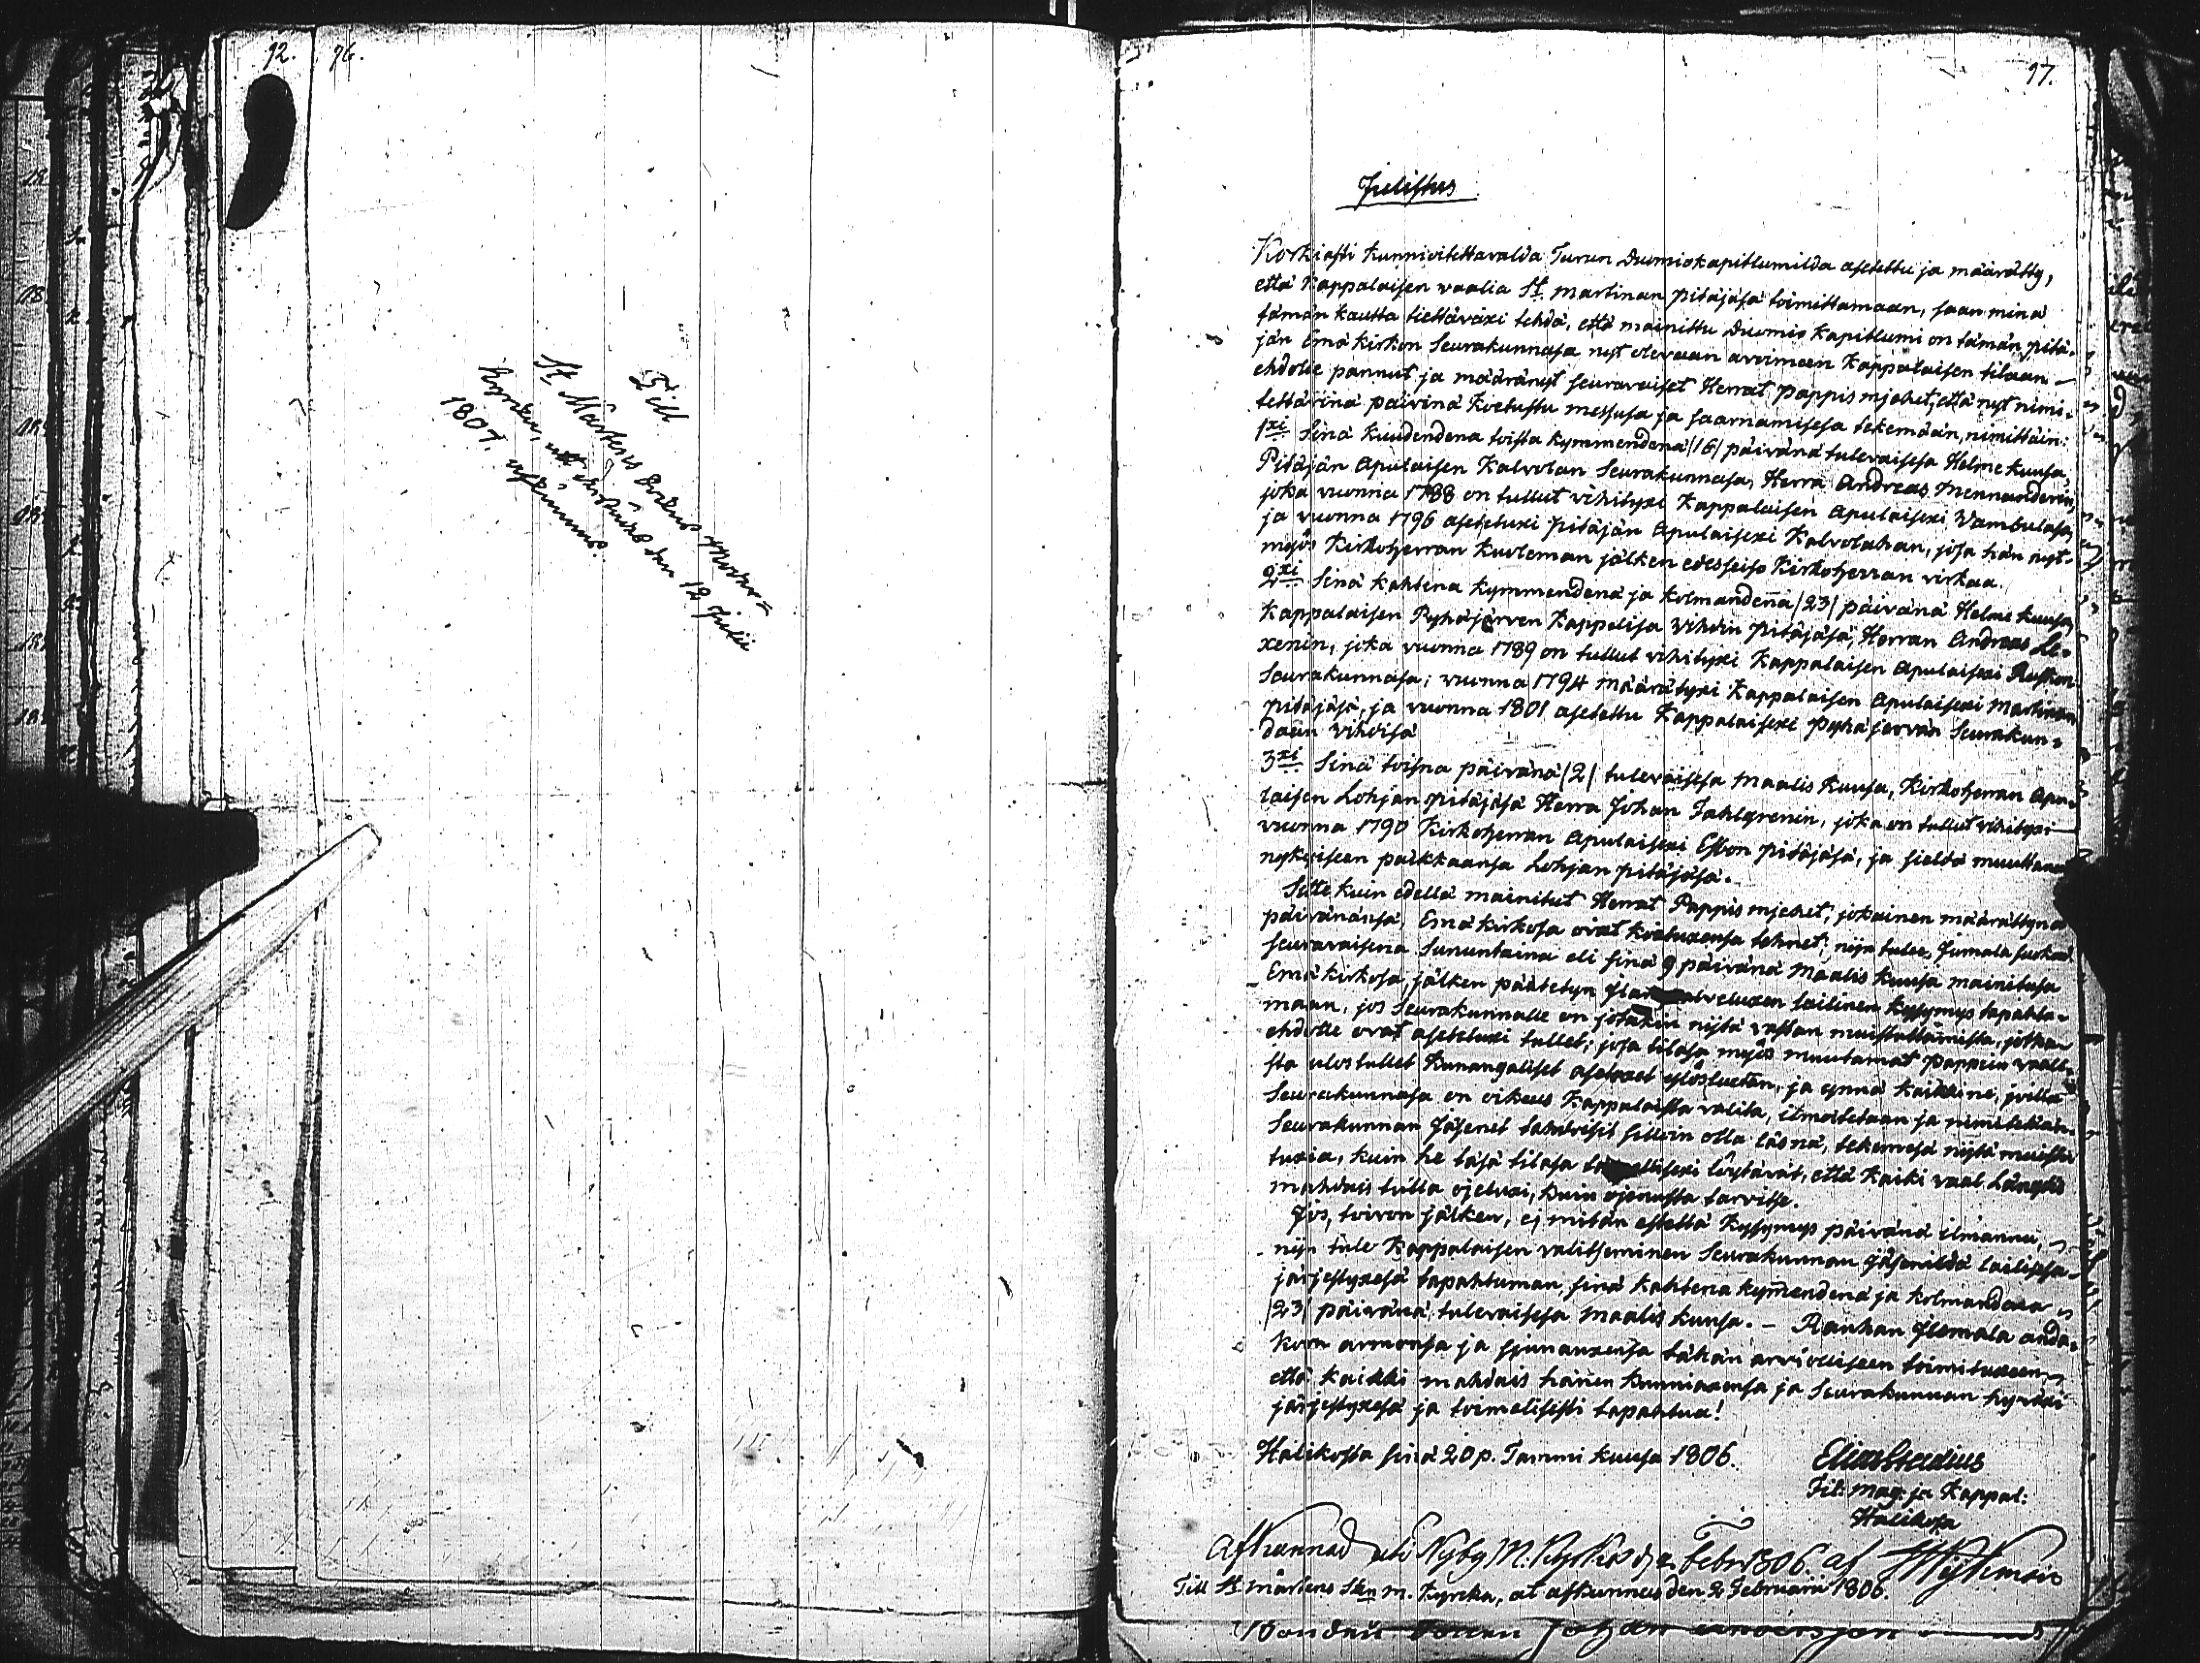 92.
96.
Till
St. Mårtens Sokns Moder=
kyrka, at den 12 Julii
1807. afkunnas.
97.
Julistus
Korkiasti kunnioitettavalda Turun Duomiokapitlumilda asetettu ja määrätty,
että Kappalaisen vaalia St. Martinan pitäjäsä toimittamaan, saan minä
tämän kautta tiettäväxi tehdä, että mainittu Duomio Kapitlumi on tämän pitä-
jän Emäkirkon Seurakunnasa nyt olevaan avoimeen Kappalaisen tilaan
ehdolle pannut ja määrännyt seuravaiset Herrat Pappismjehet, että nyt nimi-
tettävinä päivinä koetustu messusa ja saarnamisesa tekemään, nimittäin:
1xi Sinä kuudendena toista kymmendenä /16/ päivänä tulevaisesa Helme kuusa,
Pitäjän Apulaisen Kalvolan Seurakunnasa, Herra Andreas Mennanderin,
joka vuonna 1788 on tullut vihityxi Kappalaisen Apulaisexi Vambulasa,
ja vuonna 1796 asetetuxi Pitäjän Apulaisexi Kalvolahan, josa hän nyt-
myös Kirkoherran kuoleman jälken edesseiso Kirkoherran virkaa.
2xi Sinä kahtena kymmendenä ja kolmandena /23/ päivänä Helme kuusa,
Kappalaisen Pyhäjärven Kappelisa Vihdin Pitäjäsä, Herran Andreas Le-
xenin, joka vuonna 1789 on tullut vihityxi Kappalaisen Apulaisexi Ruskon
Seurakunnasa; vuonna 1794 määrätyxi Kappalaisen Apulaisexi Martinan
pitäjäsä, ja vuonna 1801 asetettu Kappalaisexi Pyhäjervän Seurakun-
daan Vihdisä
3xi Sinä toisna päivänä /2/ tulevaisesa Maalis kuusa, Kirkoherran Apu-
laisen Lohjan pitäjäsä Herra Johan Fahlgrenin, joka on tullut vihityxi
vuonna 1790 Kirkoherran Apulaisexi Esbon pitäjäsä, ja sieldä muuttanut
nykyiseen paikkaansa Lohjan pitäjäsä.
Sitte kuin edellä mainitut Herrat Pappismjehet, jokainen määrättynä
päivänänsä, Emäkirkosa ovat koetuxensa tehnet; nijn tulee, Jumala suokoo
seuravaisena Sunnuntaina eli sinä 9 päivänä Maalis kuusa mainitusa
Emäkirkosa, jälken päätetyn Jlan palveluxen lailinen kysymys tapahtu-
maan, jos Seurakunnalle on jotakin nijtä vastan muistuttamista, jotka
ehdolle ovat asetetuxi tullet; josa tilasa myös muutamat Pappein vaali-
sta ulostullet Kunangaliset asetoxet ylösluetan, ja ynnä kaikkine, joilla
Seurakunnasa on oikeus Kappalaista valita, ilmoitetaan ja nimitetään.
Seurakunnan Jäsenet tahtoisit silloin olla läsnä, tekemesä nijtä muistu-
tuxia, kuin he täsä tilasa löytävät, että kaiki vaal Längdis
mahdais tulla ojetuxi, kuin ojennusta tarvitse.
Jos, toivon jälken, ej mitän estettä kysymys päivänä ilmannu,
nijn tule Kappalaisen valitseminen Seurakunnan Jäsenildä lailisesa
järjestyxesä tapahtuman, sinä kahtena kymendenä ja kolmandena
/23/ päivänä tulevaisesa Maalis kuusa. — Rauhan Jumala anda-
koon armonsa ja siunauxensa tähän arvoliseen toimituxeen,
että kaikki mahdais hänen kunniaxensa ja Seurakunnan hyväxi
järjestyxesä ja toimelisesti tapahtua!
Halikosta sinä 20 p. Tammi kuusa 1806.
Elias Stadius
Fil: Mag: ja Kappal:
Halikosa
Afkunnad uti Nyby M. Kyrka d. 2 Febr. 1806. af
Till St Mårtens Skn M. Kyrcka, at afkunnas den 2 Februarii 1806.